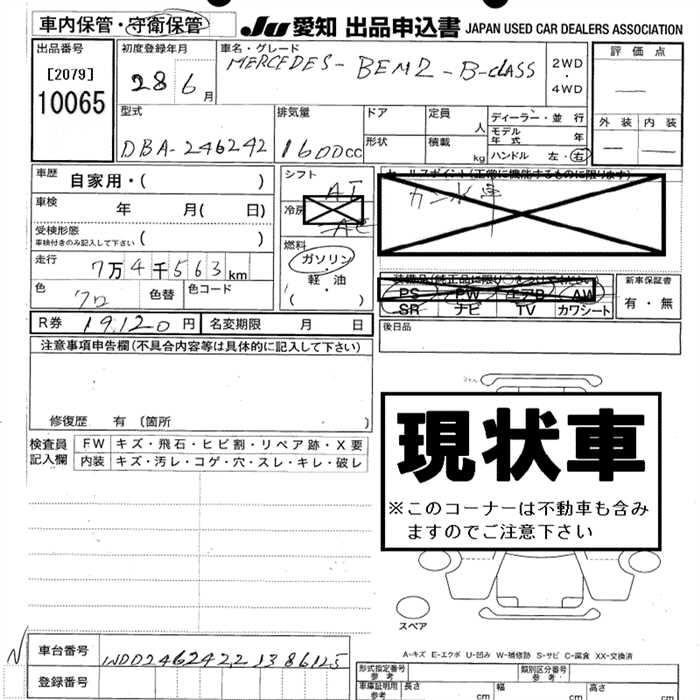 車内保管・守衛保管 JU 愛知 出品申込書 JAPAN USED CAR DEALERS ASSOCIATION
出品番号 初度登録年月 車名・グレード 評価点
[2079] 28 6月 MERCEDES-BENZ-B-CLASS 2WD・4WD
10065
型式 排気量 ドア 定員 人 ディーラー・並行 外装 内装
DBA-246242 1600cc 形状 積載 kg モデル年式 年
ハンドル 左・右
車歴 自家用・( ) シフト AT
車検 年 月( 日) 冷房 AC
受検形態 車検付きのみ記入して下さい ( ) 燃料
走行 7万4千563km ガソリン・軽油
色 クロ 色替 色コード ( )
新車保証書
有・無
PS PW エアB AW
SR ナビ TV カワシート
R券 19,120円 名変期限 月 日 後日品
注意事項申告欄(不具合内容等は具体的に記入して下さい)
修復歴 有(箇所 )
検査員記入欄 FW キズ・飛石・ヒビ割・リペア跡・X要
内装 キズ・汚レ・コゲ・穴・スレ・キレ・破レ
現状車
※このコーナーは不動車も含み
ますのでご注意下さい
スペア
A-キズ E-エクボ U-凹み W-補修跡 S-サビ C-腐食 XX-交換済
N 車台番号 WDD2462422J386125
登録番号
型式指定番号 参考 類別区分番号 参考
車庫証明用 参考 長さ cm 幅 cm 高さ cm